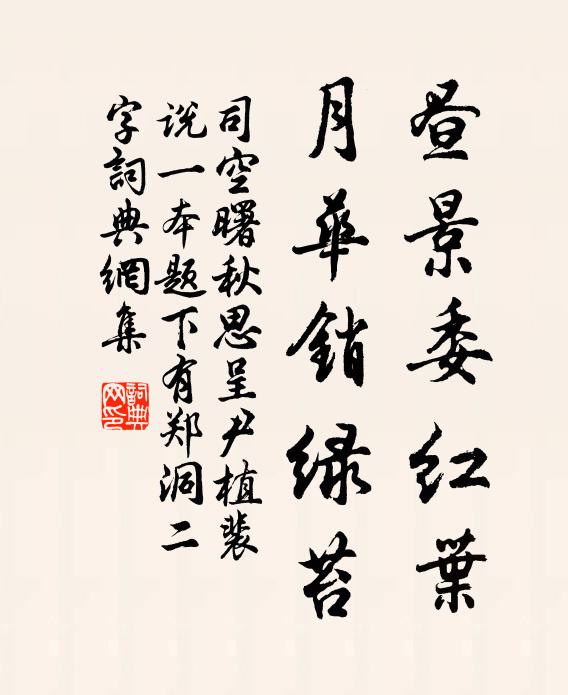 昼景委红葉
月華銷绿苔
司空曙秋思呈尹植裴
说一本题下有郑洞二
字詞典網集
詞典
网印